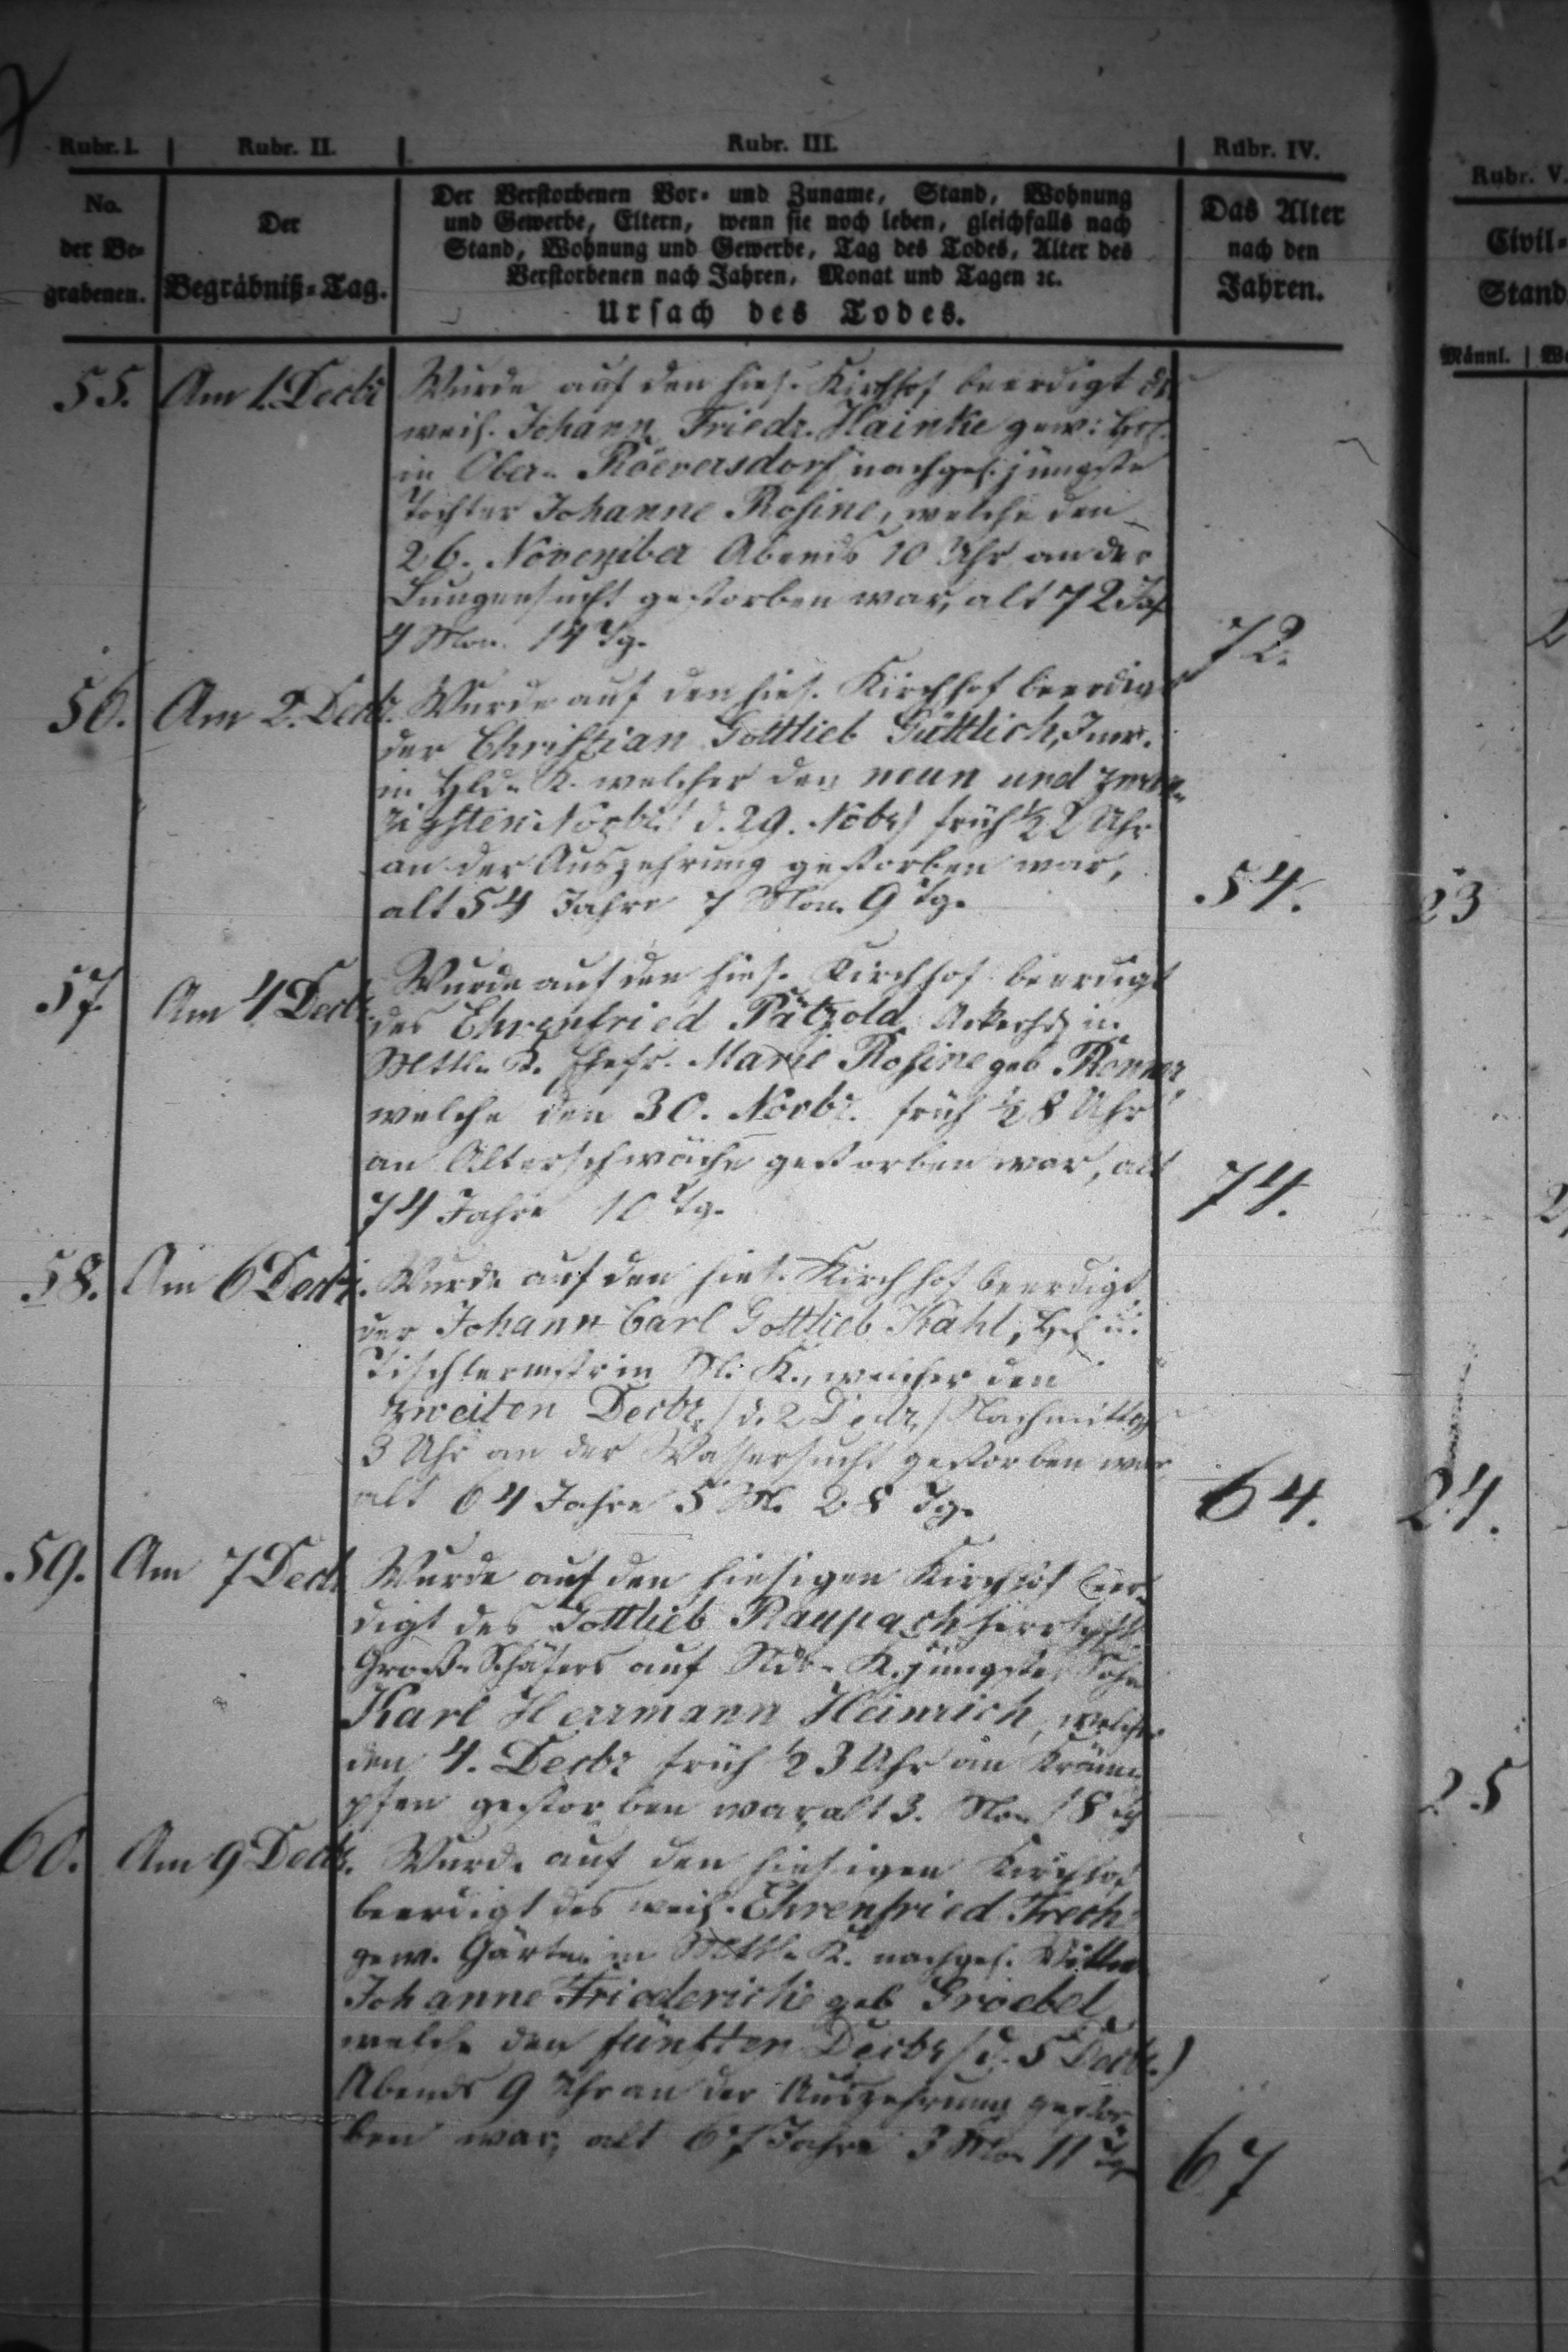 Rubr. I. Rubr. II. Rubr. III. Rubr. IV. Rubr. V.
No. der Be- grabenen.
Der Begräbniß-Tag.
Der Verstorbenen Vor- und Zuname, Stand, Wohnung
und Gewerbe, Eltern, wenn sie noch leben, gleichfalls nach
Stand, Wohnung und Gewerbe, Tag des Todes, Alter des
Verstorbenen nach Jahren, Monat und Tagen ꝛc.
Ursach des Todes.
Das Alter
nach den
Jahren.
Civil-
Stand
Männl.
55. Am 1. Decbr Wurde auf den hies. Kirchhof beerdigt
weil. Johann Friedr. Hainke gew:
in Ober- Röversdorf nachgel. jüngste
Tochter Johanne Rosine, welche den
26. November Abends 10 Uhr an der
Lungensucht gestorben war, alt 72 Jah
4 Mon. 14 Tg. 72.
56. Am 2. Decbr. Wurde auf den hies. Kirchhof beerdigt
der Christian Gottlieb Güttlich, Inw.
in K. welcher den neun und zwan-
zigsten Novbr. / d. 29. Nobr / früh ½ 2 Uhr
an der Auszehrung gestorben war,
alt 54 Jahre 7 Mon. 9 Tg. 54. 23
57. Am 4 Decbr. Wurde auf den hies. Kirchhof beerdigt
des Ehrenfried Pätzold in
Mttl- K. Ehefr. Marie Rosine geb
welche den 30. Novbr. früh ½ 8 Uhr
an Altersschwäche gestorben war, alt
74 Jahre 10 Tg. 74.
58. Am 6 Decbr. Wurde auf den hies. Kirchhof beerdigt
der Johann Carl Gottlieb Kahl, u.
Tischlermstr in K., welcher den
zweiten Decbr. / d. 2 Decbr. / Nachmittg
3 Uhr an der Wassersucht gestorben war
alt 64 Jahre 5 M. 28 Tg. 64. 24.
59. Am 7 Decbr Wurde auf den hiesigen Kirchhof beer-
digt des Gottlieb Raupach herrschftl
Groß-Schäfers auf Ndr- K. jüngster Sohn
Karl Herrmann Heinrich, welcher
den 4. Decbr früh ½ 3 Uhr an Kräm-
pfen gestorben war, alt 3. Mon 18 Tg 25
60. Am 9 Decbr. Wurde auf den hiesigen Kirchhof
beerdigt des weil. Ehrenfried Frech
gew. Gärtn. in Mttl- K. nachgel. Wittwe
Johanne Friedericke geb Groebel
welche den fünften Decbr / d. 5 Decbr. /
Abends 9 Uhr an der Auszehrung gestor-
ben war, alt 67 Jahre 3 Mon 11 Tg 67